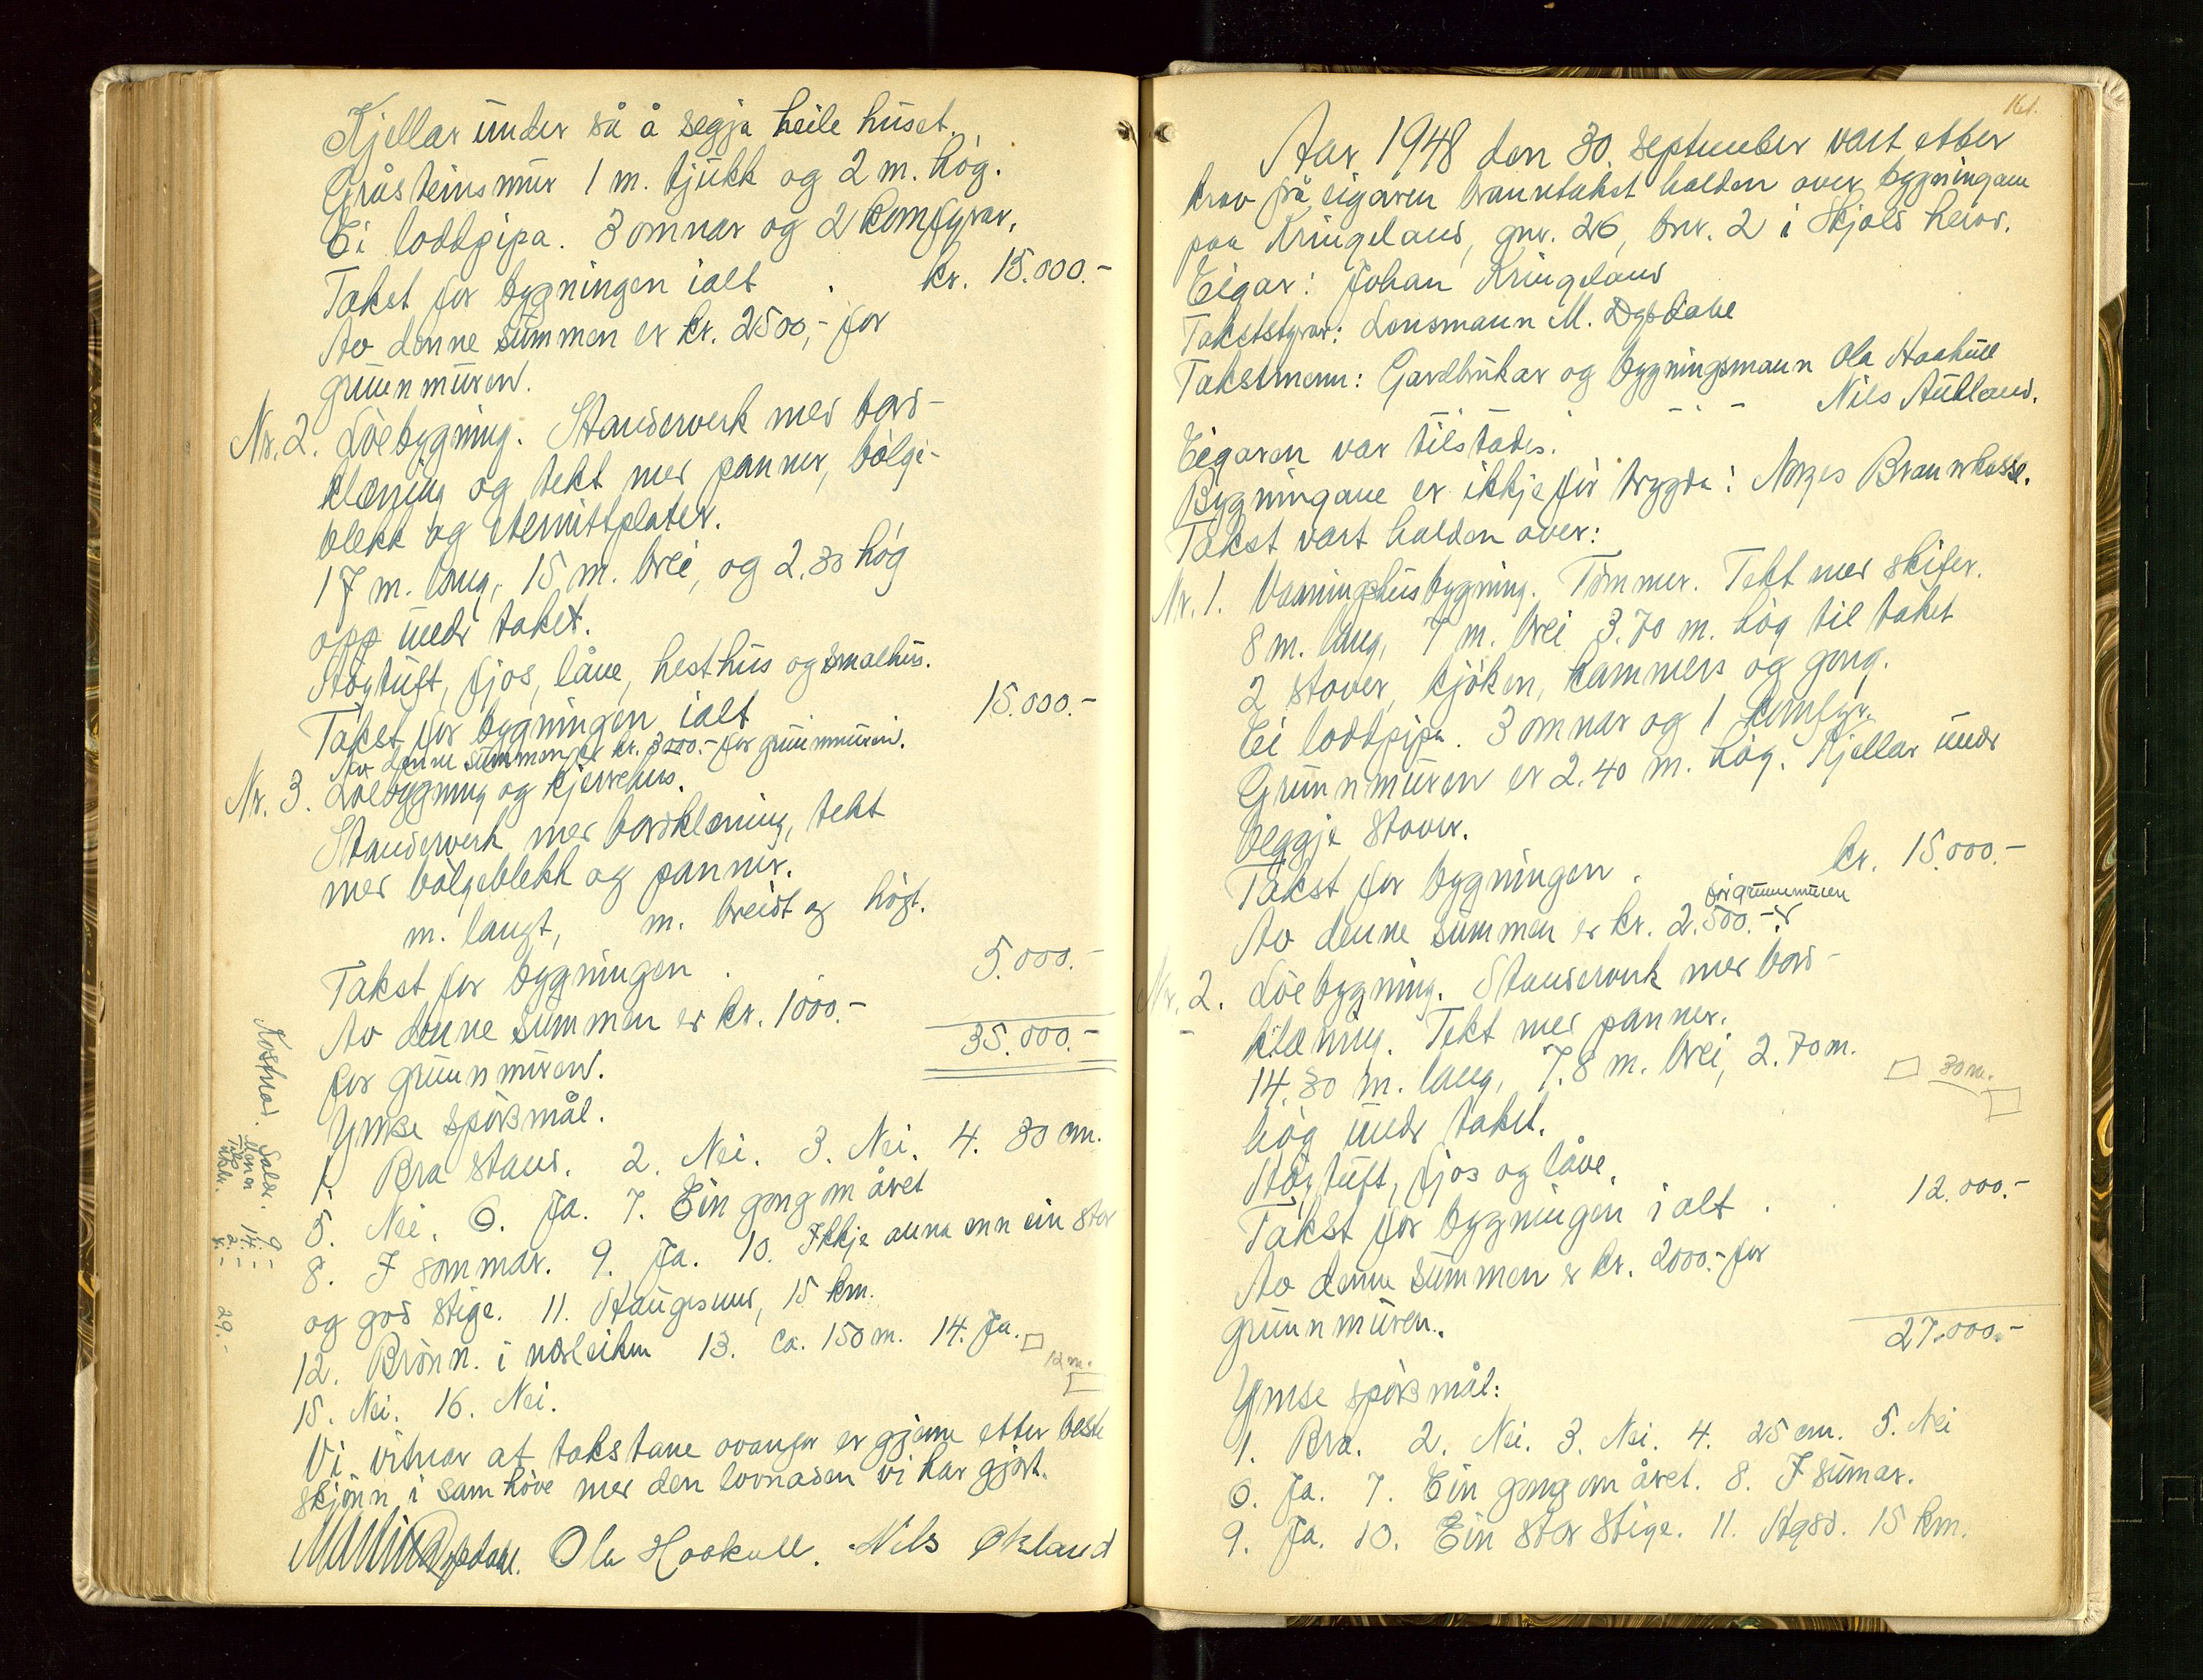 Kjellar under så å segja heile huset.
Gråsteinsmur 1 m. tjukk og 2 m. høg.
Ei loddpipa. 3 omnar og 2 komfyrar.
Takst for bygningen ialt . kr. 15.000.-
Av denne summen er kr. 2500,- for
grunnmuren.
Nr. 2. Löebygning. Standerverk med bord-
klæning og tekt med panner, bölgje-
blekk og eternittplater.
17 m. lang, 15 m. brei, og 2.30 høg
opp under taket.
Høytuft, fjos, låve, hesthus og smalhus.
Takst for bygningen ialt 15.000.-
Av denne summen er kr. 3000.- for grunnmuren.
Nr. 3. Löebygning og kjerrehus.
Standerverk med bordklæning, tekt
med bölgeblekk og panner.
m. langt, m. breidt og högt.
Takst for bygningen . 5.000.-
Av denne summen er kr. 1000.-
for grunnmuren.
35.000.-
Ymse spörsmål.
1. Bra stand. 2. Nei. 3. Nei. 4. 30 cm.
5. Nei. 6. Ja. 7. Ein gong om året
8. I sommar. 9. Ja. 10. Ikkje anna enn ein stor
og god stige. 11. Haugesund, 15 km.
12. Brönn i nærleiken 13. ca. 150 m. 14. Ja.
12 m.
15. Nei. 16. Nei.
Vi vitnar at takstane ovanfor er gjevne etter beste
skjönn i samhöve med den lovnaden vi har gjort.
M. Dypdahl. Ola Haakull. Nils Økland
Kostnad.
9.-
14.-
2.-
4.-
29.-
161.
Aar 1948 den 30. september vart etter
krav frå eigaren branntakst halden over bygningane
paa Kringeland, gnr. 26, bnr. 2 i Skjold herad.
Eigar: Johan Kringeland
Takststyrar: Lensmann M. Dypdahl
Takstmenn: Gardbrukar og bygningsmann Ola Haakull
- " - - " - Nils Aukland.
Eigaren var tilstades.
Bygningane er ikkje för trygda i Norges Brannkasse.
Takst vart halden over:
Nr. 1. Vaaningshusbygning. Tömmer. Tekt med skifer.
8 m. lang, 7 m. brei 3.70 m. höy til taket
2 stover, kjöken, kammers og gong.
Ei loddpipa. 3 omnar og 1 komfyr.
Grunnmuren er 2.40 m. höy. Kjellar under
beggje stover.
Takst for bygningen . kr. 15.000.-
for grunnmuren
Av denne summen er kr. 2.500.-
Nr. 2. Löebygning. Standerverk med bord-
klæning. Tekt med panner.
14.30 m. lang, 7.8 m. brei, 2.70 m.
30 m.
höy under taket.
Høytuft, fjos og låve.
Takst for bygningen ialt . . 12.000.-
Av denne summen er kr. 2000.- for
grunnmuren.
27.000.-
Ymse spörsmål:
1. Bra. 2. Nei. 3. Nei. 4. 25 cm. 5. Nei
6. Ja. 7. Ein gong om året. 8. I sumar.
9. Ja. 10. Ein stor stige. 11. Hgsd. 15 km.